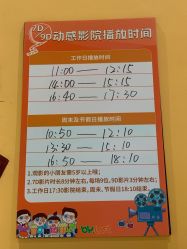 7D/9D动感影院播放时间
工作日播放时间
11:00 — 12:15
14:00 — 15:15
16:40 — 17:30
周末及节假日播放时间
10:50 — 12:10
13:30 — 15:10
16:50 — 18:10
1.观影的小朋友需5岁以上哦;
2.7D影片时长8分钟左右,每场9位,9D影片3分钟左右;
3.工作日17:30影院结束,周末、节假日18:10结束。